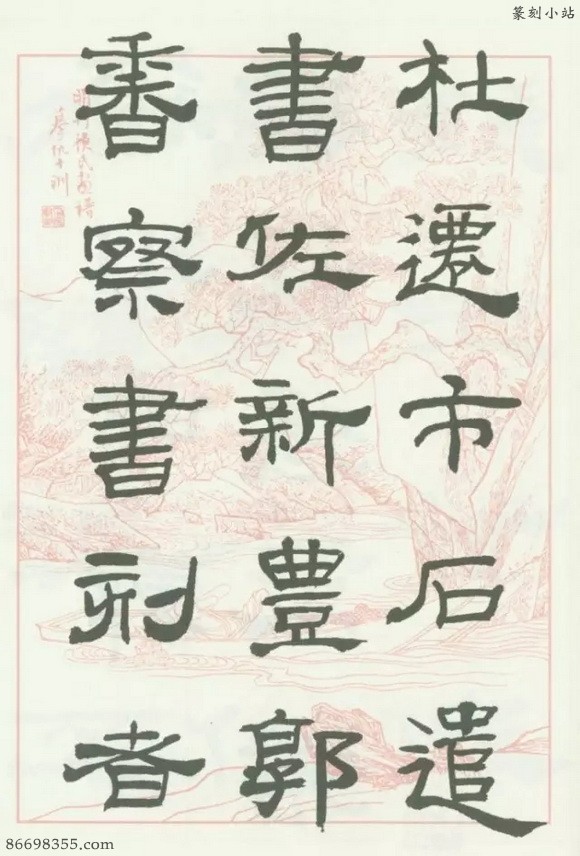 篆刻小站
杜遷市石遣
書佐新豊郭
香察書刻者
86698355.com